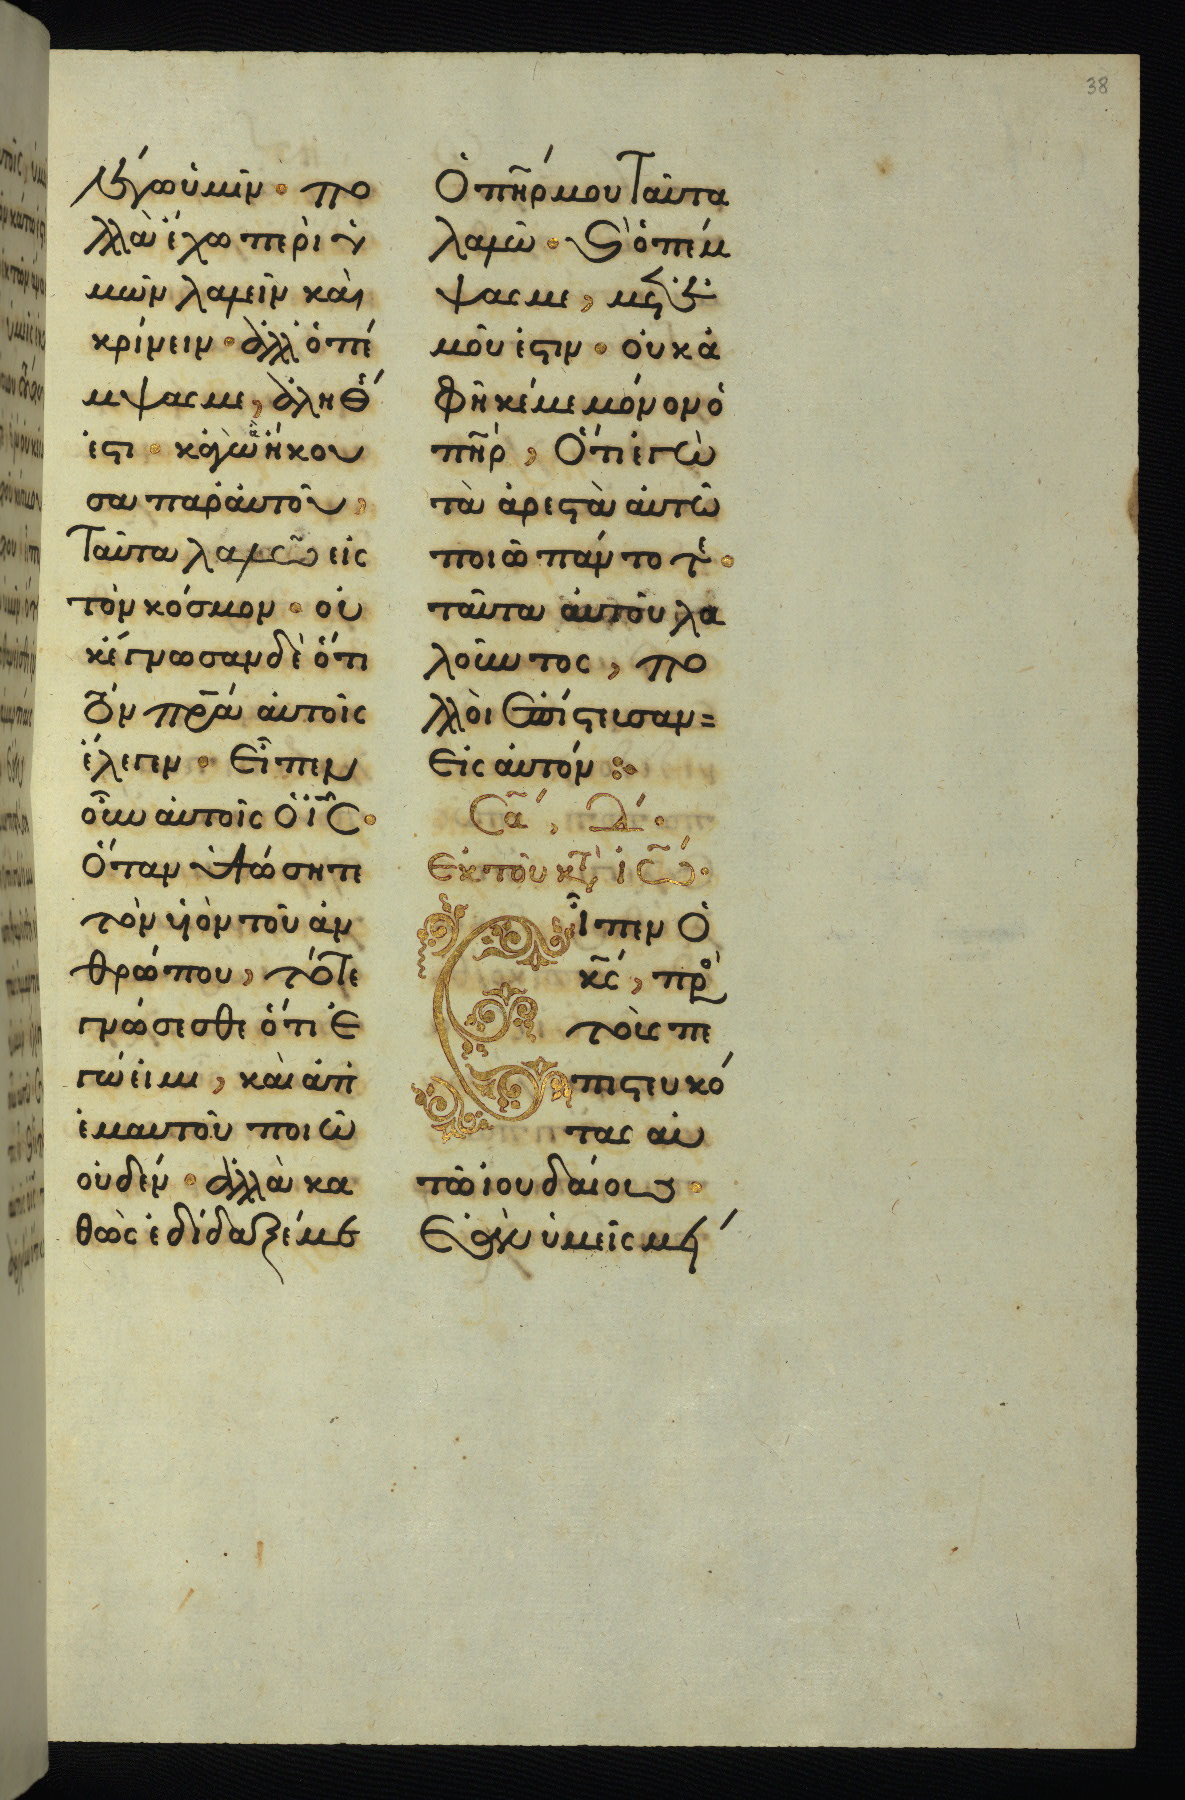 38
λέγω ὑμῖν· πο
λλὰ ἔχω περὶ ὑ
μῶν λαλεῖν καὶ
κρίνειν· ἀλλ' ὁ πέ
μψας με, ἀληθής
ἐστι· κἀγὼ ἃ ἤκου
σα παρ' αὐτοῦ,
Ταῦτα λαλῶ εἰς
τὸν κόσμον· οὐ
κ ἔγνωσαν δὲ ὅτι
τὸν πρ̅α αὐτοῖς
ἔλεγεν· Εἶπεν
οὖν αὐτοῖς Ὁ ι̅ς·
Ὅταν ὑψώσητε
τὸν υἱὸν τοῦ ἀν
θρώπου, τότε
γνώσεσθε ὅτι Ἐ
γώ εἰμι, καὶ ἀπ'
ἐμαυτοῦ ποιῶ
οὐδέν· ἀλλὰ κα
θὼς ἐδίδαξέ με
Ὁ πη̅ρ μου Ταῦτα
λαλῶ· Καὶ ὁ πέμ
ψας με, μετ' ἐ
μοῦ ἐστιν· οὐκ ἀ
φῆκέ με μόνον ὁ
πη̅ρ, Ὅτι ἐγὼ
τὰ ἀρεστὰ αὐτῶ
ποιῶ πάντοτε·
ταῦτα αὐτοῦ λα
λοῦντος, πο
λλοὶ ἐπίστευσαν=
Εἰς αὐτόν
Σα̅, δ·
Ἐκ τοῦ κατὰ ἰω̅·
Εἶπεν Ὁ
κ̅ς, πρὸς
τοὺς πε
πιστευκό
τας αὐ
τῶ ἰουδαίους·
Ἐὰν ὑμεῖς μεί